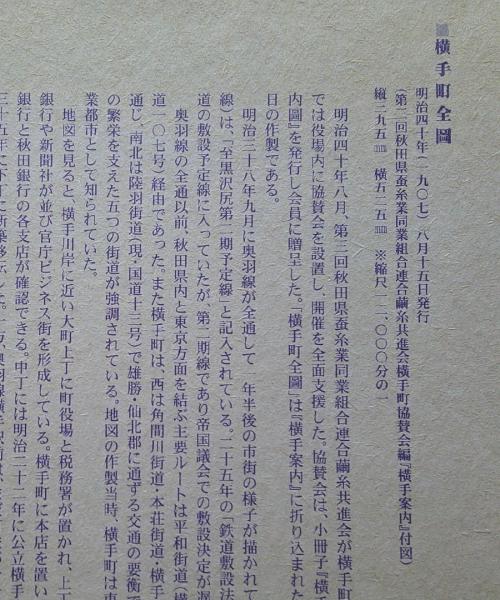 ■横手町全圖
明治四十年(一九〇七)八月十五日発行
(第二回秋田県蚕糸業同業組合連合繭糸共進会横手町協賛会編『横手案内』付図)
縦三九五㎜ 横五二五㎜ ※縮尺一二、〇〇〇分の一
明治四十年八月、第二回秋田県蚕糸業同業組合連合繭糸共進会が横手町
では役場内に協賛会を設置し、開催を全面支援した。協賛会は、小冊子『横手
内図』を発行し会員に贈呈した。『横手町全圖』は『横手案内』に折り込まれた
日の作製である。
明治三十八年九月に奥羽線が全通して一年半後の市街の様子が描かれて
線)は、「至黒沢尻第二期予定線」と記入されている。二十五年の「鉄道敷設法
道の敷設予定線に入っていたが、第二期線であり帝国議会での敷設決定が遅
奥羽線の全通以前、秋田県内と東京方面を結ぶ主要ルートは平和街道(横
道一〇七号)経由であった。また横手町は、西は角間川街道・本荘街道・横手
通じ、南北は陸羽街道(現・国道十三号)で雄勝・仙北郡に通ずる交通の要衝で
の繁栄を支えた五つの街道が強調されている。地図の作製当時、横手町は東
業都市として知られていた。
地図を見ると、横手川岸に近い大町上丁に町役場と税務署が置かれ、上丁
銀行や新聞社が並び官庁ビジネス街を形成している。横手町に本店を置い
銀行と秋田銀行の各支店が確認できる。中丁には明治二十二年に公立横手
三十五年に下丁に新築移転した。